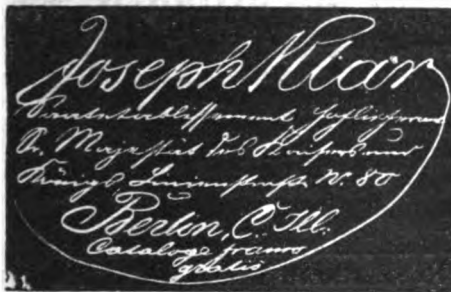 Joseph Klar
Saatetablissement, Hoflieferant
Sr. Majestät des Kaisers und
Königs, Linienstraße N. 80
Berlin, C. Ill.
Cataloge franco
gratis